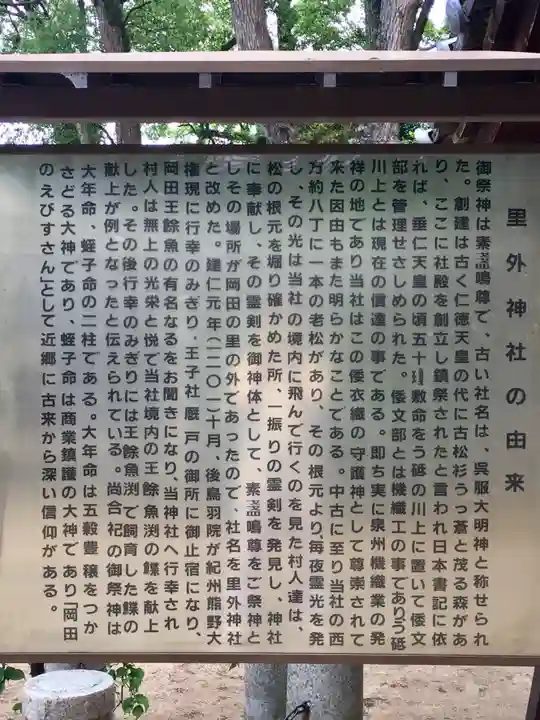 里外神社の由来
御祭神は素盞鳴尊で、古い社名は、呉服大明神と称せられ
た。創建は古く仁徳天皇の代に古松杉うっ蒼と茂る森があ
り、ここに社殿を創立し鎮祭されたと言われ日本書記に依
れば、垂仁天皇の頃五十瓊敷命をう砥の川上に置いて倭文
部を管理せさしめられた。倭文部とは機織工の事でありう砥
川上とは現在の信達の事である。即ち実に泉州機織業の発
祥の地であり当社はこの倭衣織の守護神として尊崇されて
来た因由もまた明らかなことである。中古に至り当社の西
方約八丁に一本の老松があり、その根元より、毎夜霊光を発
し、その光は当社の境内に飛んで行くのを見た村人達は、
松の根元を堀り確かめた所、一振りの霊剣を発見し、神社
に奉献し、その霊剣を御神体として、素盞鳴尊をご祭神と
しその場所が岡田の里の外であったので、社名を里外神社
と改めた。建仁元年(一二〇一)十月、後鳥羽院が紀州熊野大
権現に行幸のみぎり、王子社厩戸の御所に御止宿になり、
岡田王餘魚の有名なるをお聞きになり、当神社へ行幸され
村人は無上の光栄と悦で当社境内の王餘魚渕の鰈を献上
した。その後行幸のみぎりには王餘魚渕で飼育した鰈の
献上が例となったと伝えられている。尚合祀の御祭神は
大年命、蛭子命の二柱である。大年命は五穀豊穣をつか
さどる大神であり、蛭子命は商業鎮護の大神であり「岡田
のえびすさん」として近郷に古来から深い信仰がある。